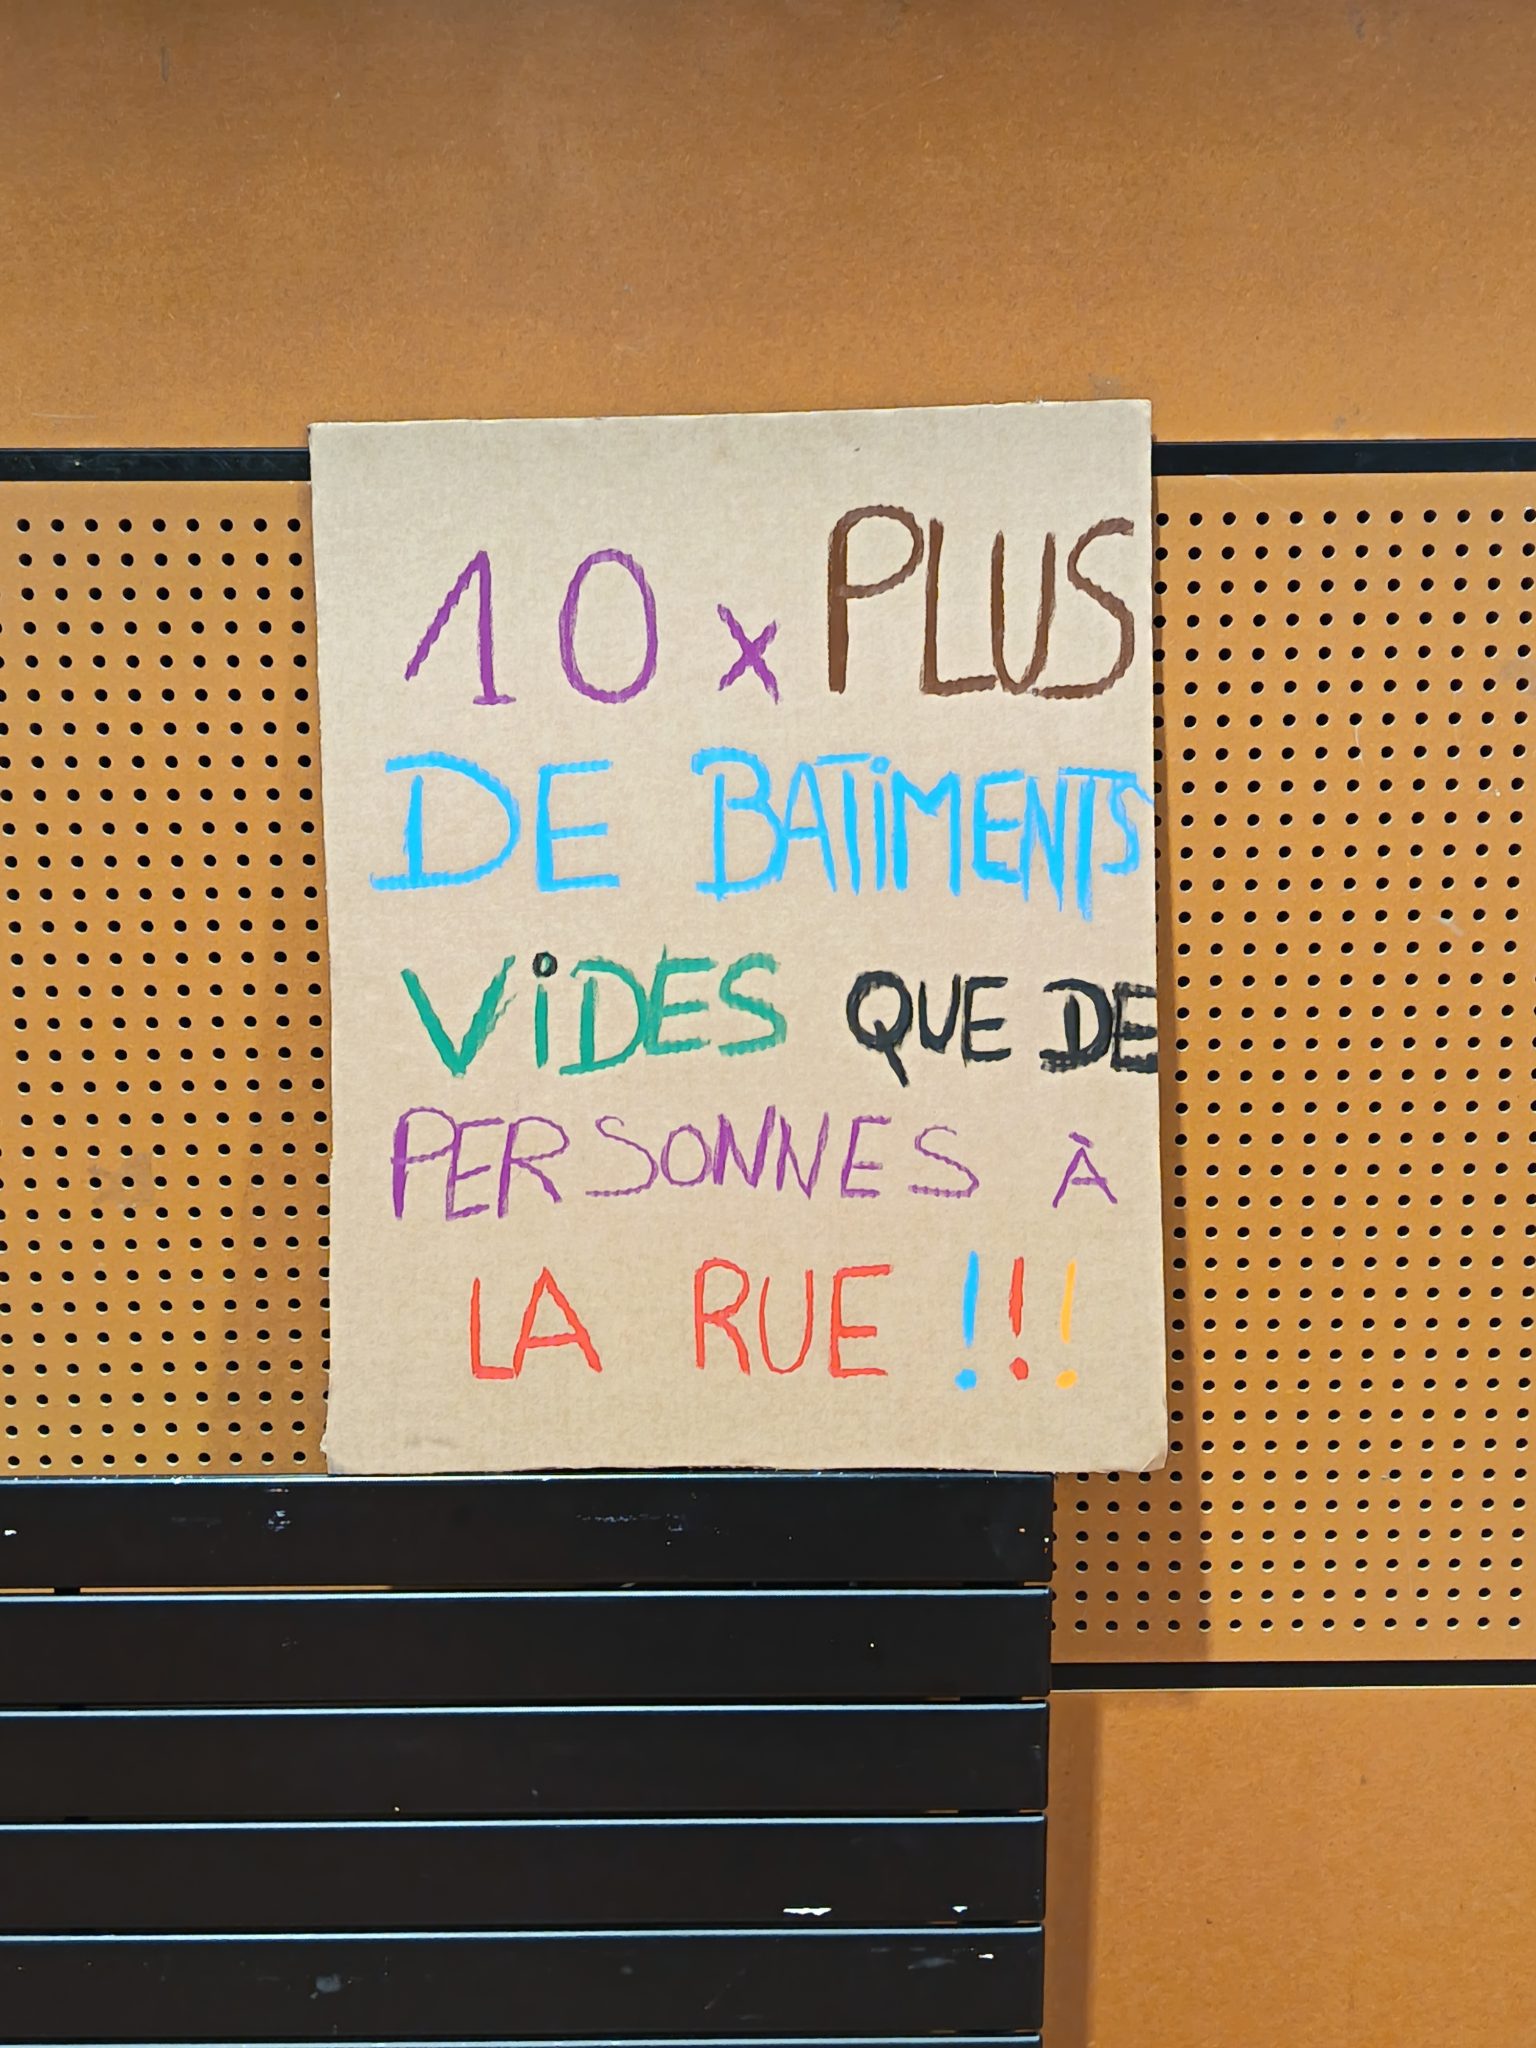 10 x PLUS
DE BATiMENTS
ViDES QUE DE
PERSONNES À
LA RUE !!!